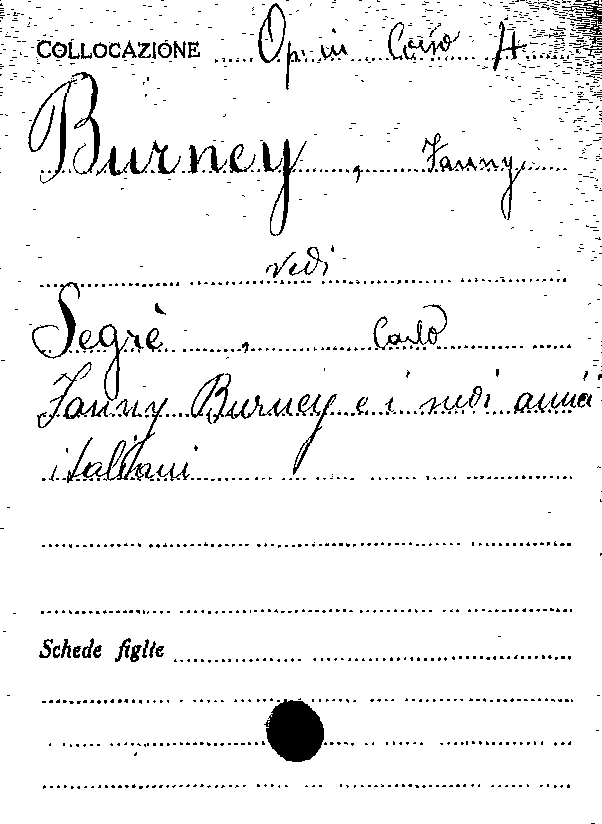 COLLOCAZIONE Op. in Corso 4
Burney, Fanny
vedi
Segrè, Carlo
Fanny Burney e i suoi amici
italiani
Schede figlie